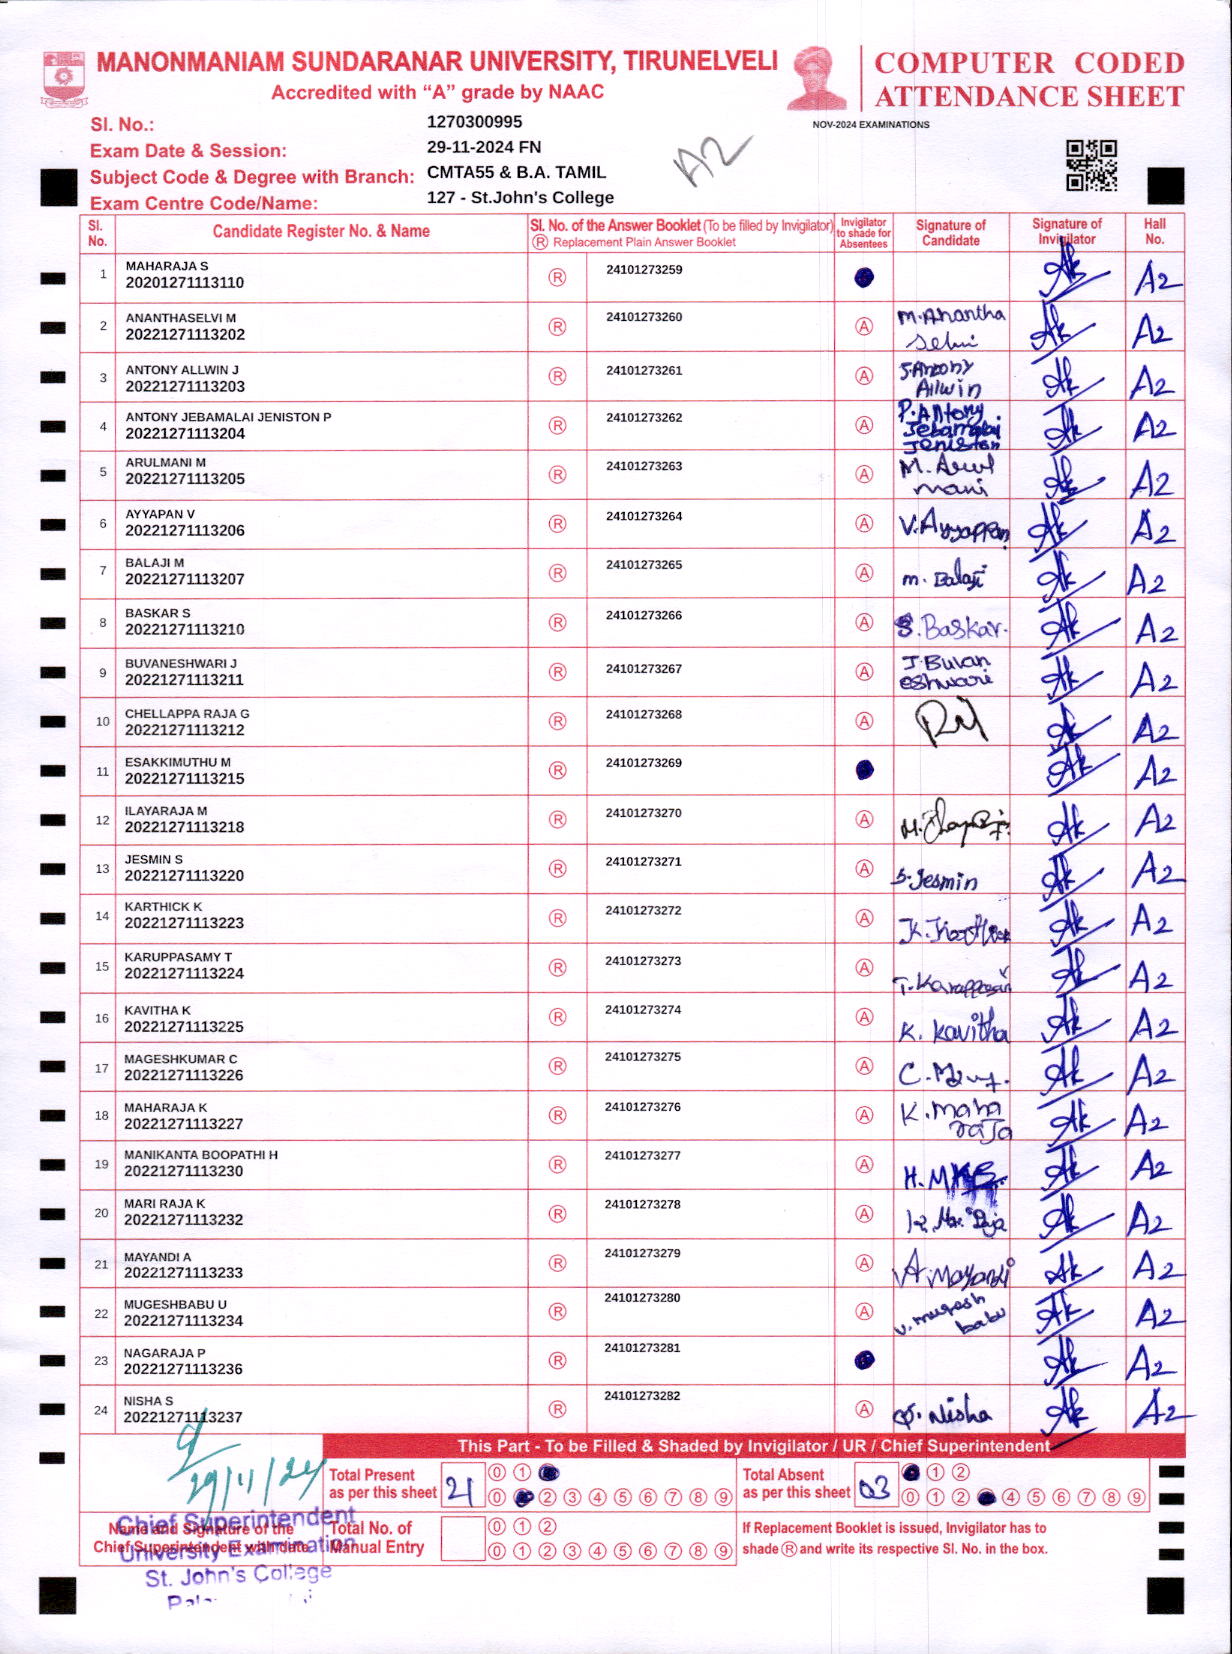 MANONMANIAM SUNDARANAR UNIVERSITY, TIRUNELVELI
Accredited with “A” grade by NAAC
COMPUTER CODED
ATTENDANCE SHEET
NOV-2024 EXAMINATIONS
Sl. No.: 1270300995
Exam Date & Session: 29-11-2024 FN
Subject Code & Degree with Branch: CMTA55 & B.A. TAMIL
Exam Centre Code/Name: 127 - St.John's College
A2
Sl. No. Candidate Register No. & Name Sl. No. of the Answer Booklet (To be filled by Invigilator) Ⓡ Replacement Plain Answer Booklet Invigilator to shade for Absentees Signature of Candidate Signature of Invigilator Hall No.
1 MAHARAJA S 20201271113110 Ⓡ 24101273259 A2
2 ANANTHASELVI M 20221271113202 Ⓡ 24101273260 Ⓐ M.Anantha Selvi A2
3 ANTONY ALLWIN J 20221271113203 Ⓡ 24101273261 Ⓐ J.Antony Allwin A2
4 ANTONY JEBAMALAI JENISTON P 20221271113204 Ⓡ 24101273262 Ⓐ P.Antony Jebamalai Jeniston A2
5 ARULMANI M 20221271113205 Ⓡ 24101273263 Ⓐ M.Arul mani A2
6 AYYAPAN V 20221271113206 Ⓡ 24101273264 Ⓐ V.Ayyappan A2
7 BALAJI M 20221271113207 Ⓡ 24101273265 Ⓐ m. Balaji A2
8 BASKAR S 20221271113210 Ⓡ 24101273266 Ⓐ S.Baskar. A2
9 BUVANESHWARI J 20221271113211 Ⓡ 24101273267 Ⓐ J.Buvan eshwari A2
10 CHELLAPPA RAJA G 20221271113212 Ⓡ 24101273268 Ⓐ A2
11 ESAKKIMUTHU M 20221271113215 Ⓡ 24101273269 A2
12 ILAYARAJA M 20221271113218 Ⓡ 24101273270 Ⓐ A2
13 JESMIN S 20221271113220 Ⓡ 24101273271 Ⓐ S.Jesmin A2
14 KARTHICK K 20221271113223 Ⓡ 24101273272 Ⓐ K.Karthick A2
15 KARUPPASAMY T 20221271113224 Ⓡ 24101273273 Ⓐ A2
16 KAVITHA K 20221271113225 Ⓡ 24101273274 Ⓐ K. Kavitha A2
17 MAGESHKUMAR C 20221271113226 Ⓡ 24101273275 Ⓐ A2
18 MAHARAJA K 20221271113227 Ⓡ 24101273276 Ⓐ K.maha raja A2
19 MANIKANTA BOOPATHI H 20221271113230 Ⓡ 24101273277 Ⓐ A2
20 MARI RAJA K 20221271113232 Ⓡ 24101273278 Ⓐ A2
21 MAYANDI A 20221271113233 Ⓡ 24101273279 Ⓐ A.Mayandi A2
22 MUGESHBABU U 20221271113234 Ⓡ 24101273280 Ⓐ U.mugesh babu A2
23 NAGARAJA P 20221271113236 Ⓡ 24101273281 A2
24 NISHA S 20221271113237 Ⓡ 24101273282 Ⓐ S. Nisha A2
This Part - To be Filled & Shaded by Invigilator / UR / Chief Superintendent
29/11/24
Total Present as per this sheet 21 ⓪ ① ⓪ ② ③ ④ ⑤ ⑥ ⑦ ⑧ ⑨
Total Absent as per this sheet 03 ① ② ⓪ ① ② ④ ⑤ ⑥ ⑦ ⑧ ⑨
Name and Signature of the Chief Superintendent with date
Chief Superintendent
University Examination
St. John's College
Total No. of Manual Entry ⓪ ① ② ⓪ ① ② ③ ④ ⑤ ⑥ ⑦ ⑧ ⑨
If Replacement Booklet is issued, Invigilator has to
shade Ⓡ and write its respective Sl. No. in the box.